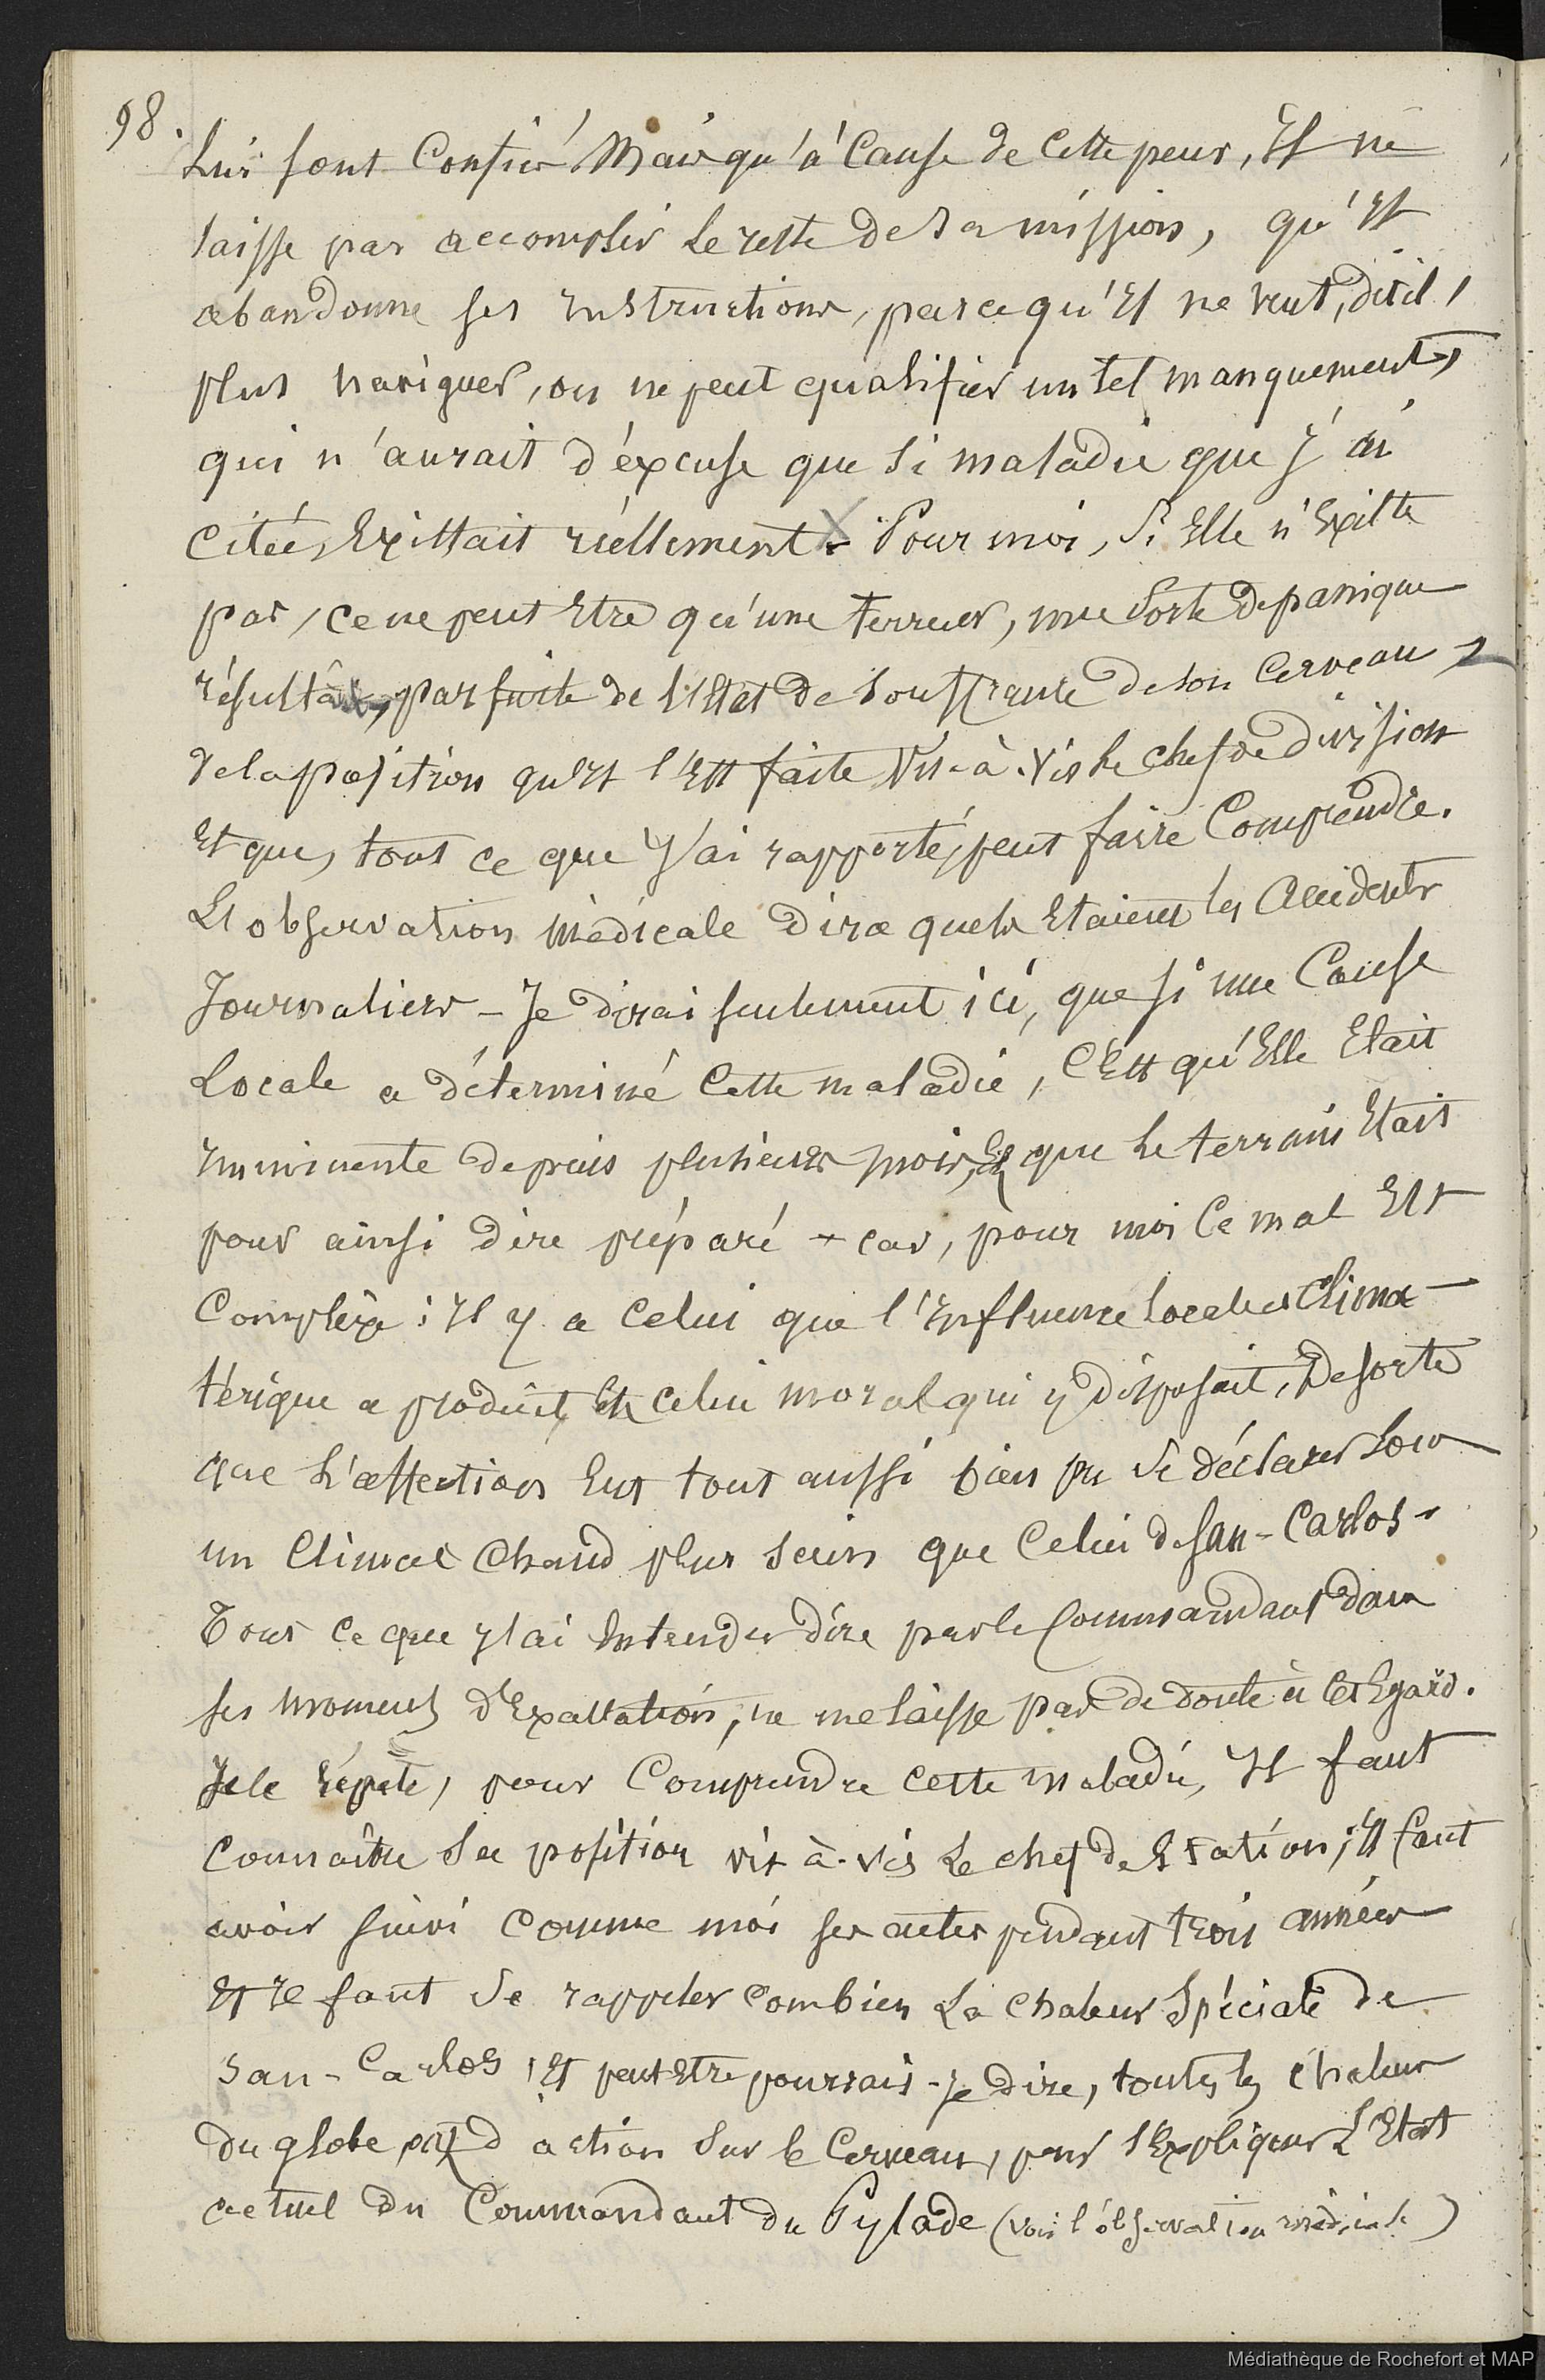 98.
Lui sont Confiés Mais qu'à Cause de Cette peur, Il ne
laisse pas accomplir le reste de sa mission, qu'Il
abandonne ses Instructions, parce qu'Il ne veut, dit il,
plus naviguer, on ne peut qualifier un tel manquement,
qui n'aurait d'éxcuse que si maladie que J'ai
citée, Existait réellement. Pour moi, Si Elle n'Existe
pas, ce ne peut Etre qu'une terreur, une Sorte de panique
résultat, par suite de l'Etat de Souffrance de son Cerveau,
de la position qu'Il s'Est faite Vis-à-Vis le chef de division
Et que, tout ce que J'ai rapporté, peut faire Comprendre.
L'observation médicale dira quels Etaient les Accidents
Journaliers - Je dirai seulement ici, que si une Cause
Locale a déterminé Cette maladie, C'Est qu'Elle Etait
Imminente depuis plusieurs mois, Et que le terrain Etait
pour ainsi dire préparé - car, pour moi Ce mal Est
Complèxe : Il y a Celui que l'Influence Locale et Clima-
térique a produit, Et Celui moral qui y disposait, De sorte
que L'affection Eut tout aussi bien pu Se déclarer Sous
un Climat Chaud plus Sain que Celui de San-Carlos.
Tout Ce que J'ai Entendu dire par le Commandant dans
ses moments d'Exaltation, ne me laisse pas de doute à Cet Egard.
Je le répète, pour Comprendre Cette maladie, Il faut
Connaître Sa position vis à-vis Le chef de Station; Il faut
avoir suivi Comme moi ses actes pendant trois années
Et Il faut Se rappeler Combien La Chaleur Spéciale de
San-Carlos, Et peut Etre pourrais-Je dire, toutes les Chaleurs
du globe, ont d'action Sur le Cerveau, pour s'Expliquer L'Etat
actuel du Commandant du Pylade (voir l'observation médicale)
Médiathèque de Rochefort et MAP